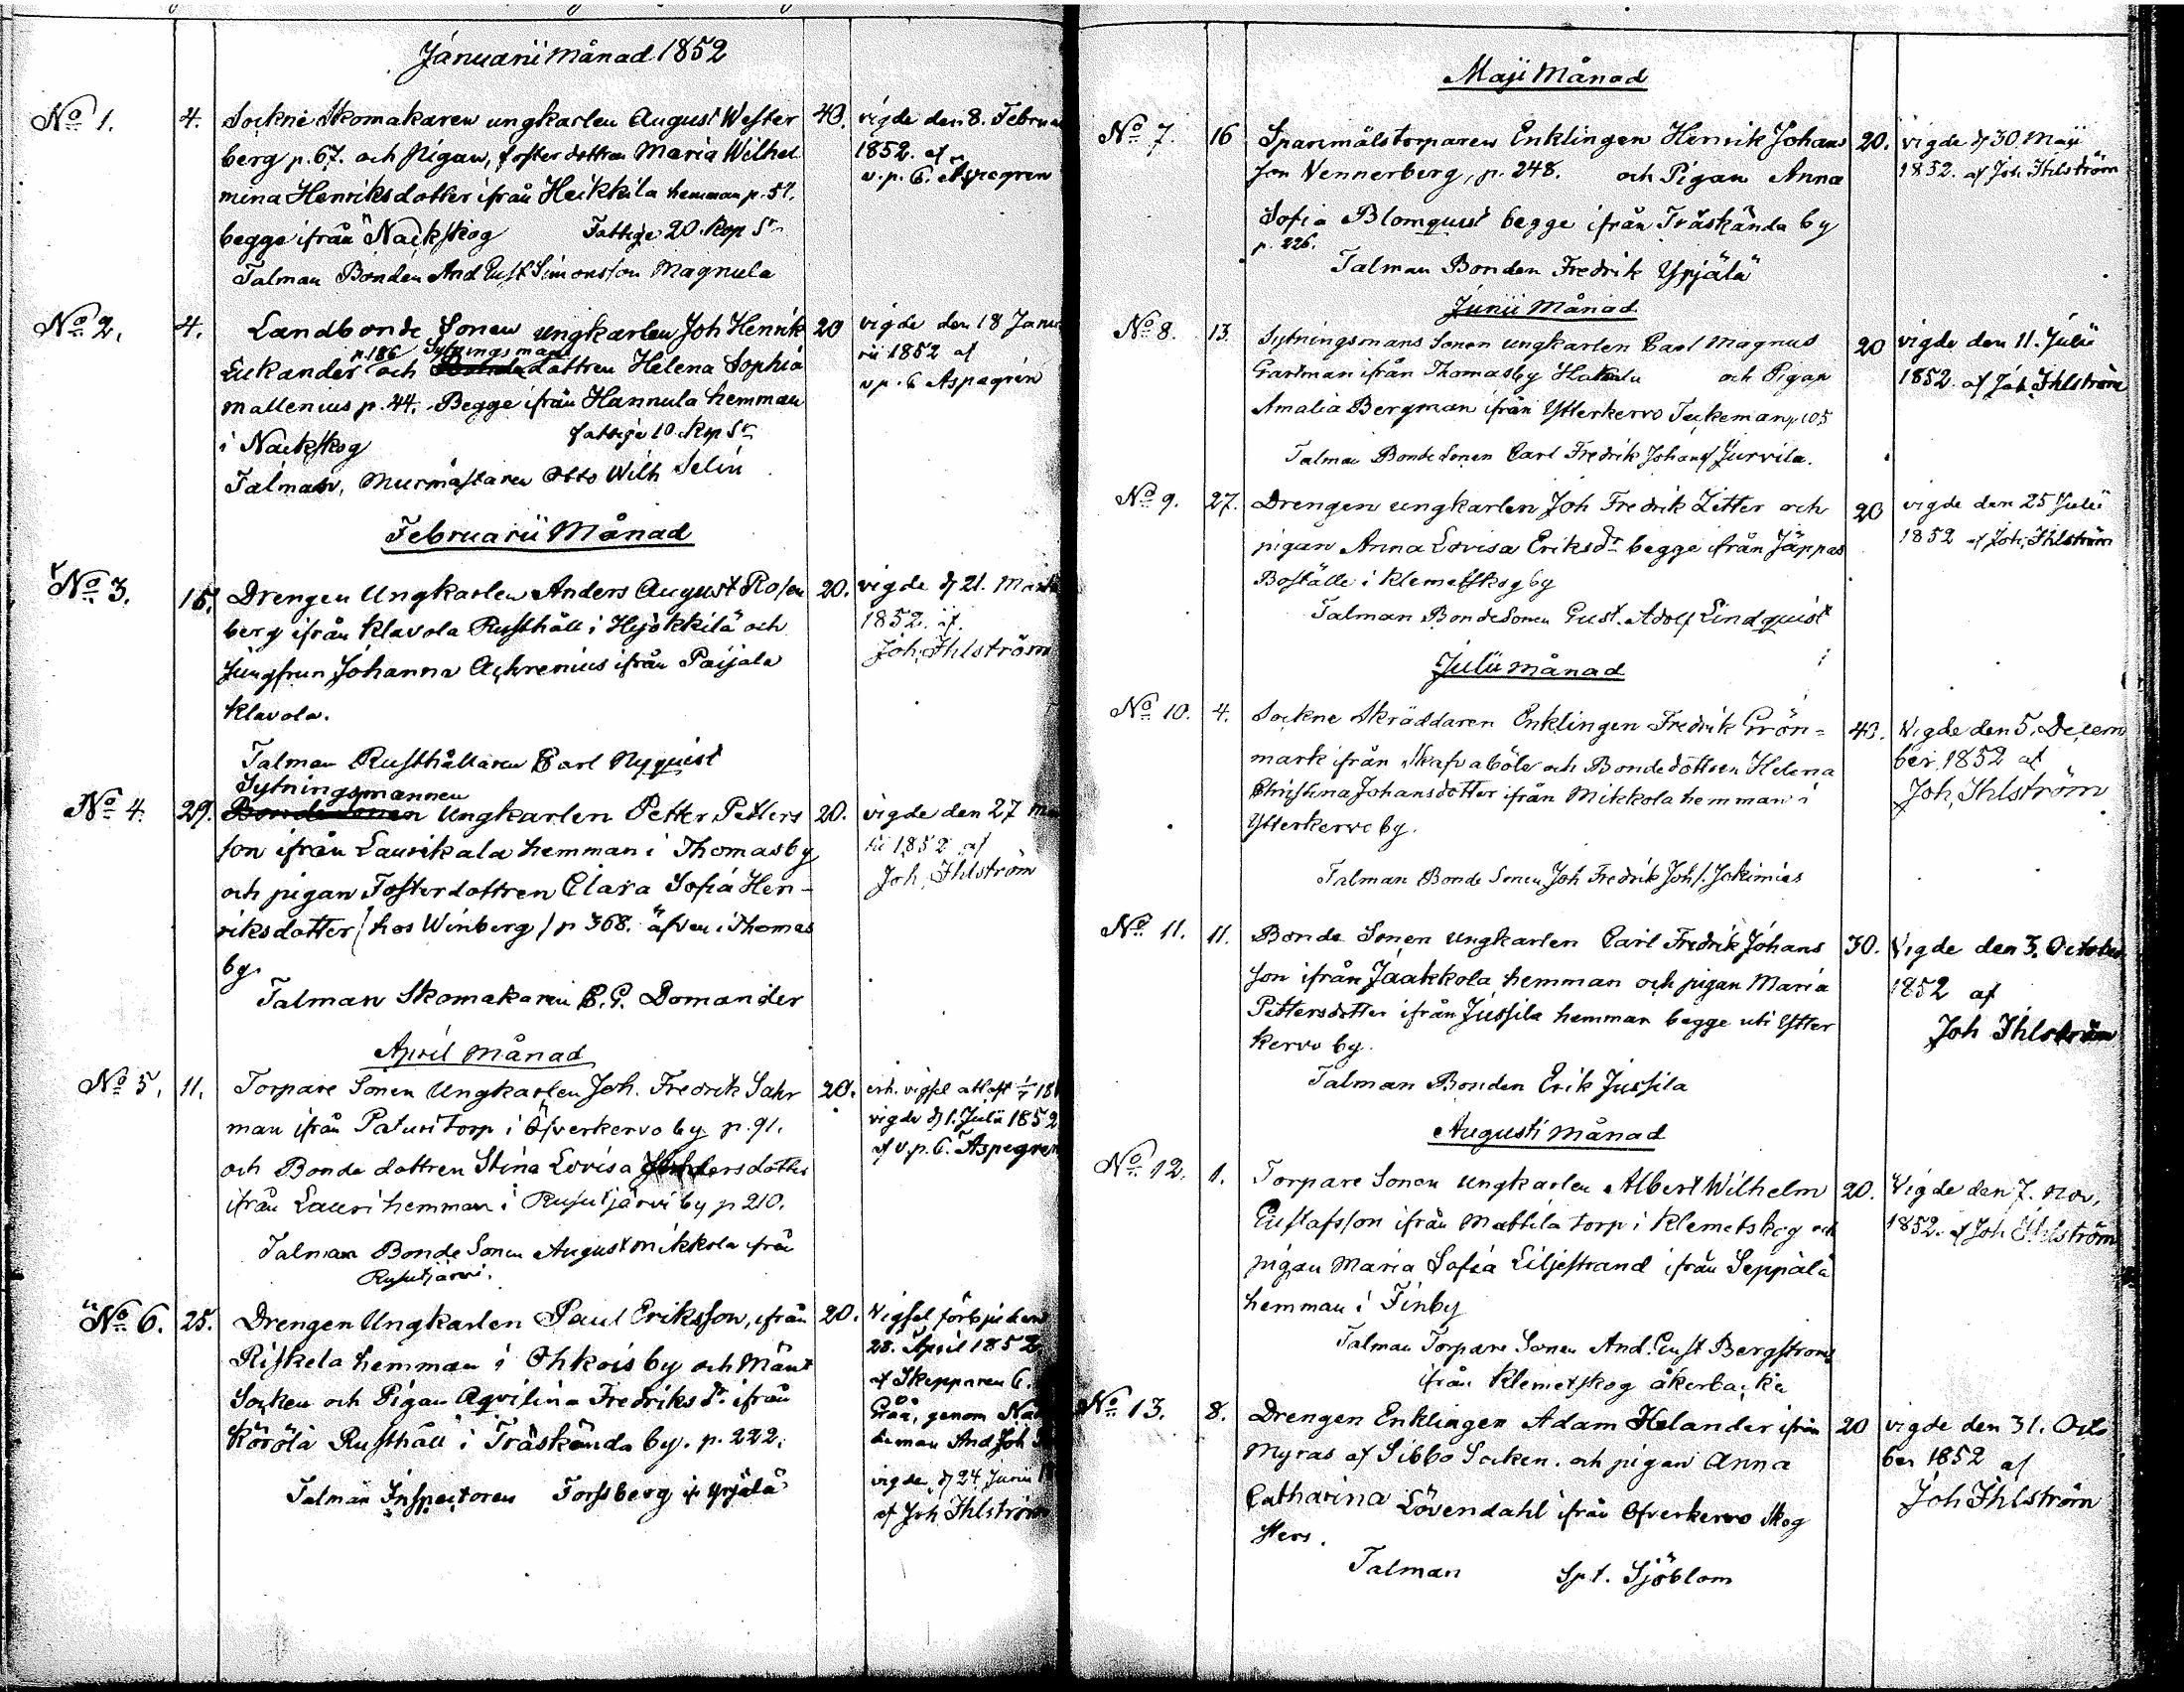 Januarii månad 1852
No 1. 4. Sockne Skomakaren ungkarlen August Wester 40. vigde den 8. Februa
berg p. 67. och Pigan, fosterdottren Maria Wilhel 1852. af
mina Henriksdotter ifrån Heikkilä hemman p. 57. v. p. C. Aspegren
begge ifrån Näckskog Fattige 20. kop Sr
Talman Bonden And Gust Simonsson Magnula
No 2. 4. Landbonde Sonen ungkarlen Joh Henrik 20 vigde den 18 Janu
p. 186 Sytningsmans
Eukander och dottren Helena Sophia rii 1852 af
Mallenius p. 44. Begge ifrån Hannula hemman v p. C Aspegren
i Nackskog fattige 10 kop Sr
Talman, Murmästaren Otto Wilh Selin
Februarii Månad
No 3. 15. Drengen Ungkarlen Anders August Rosen 20. vigde d 21. Marti
berg ifrån Klavola Rusthåll i Hyökkilä och 1852. af
Jungfrun Johanna Achrenius ifrån Paijala Joh. Ihlström
Klavola.
Talman Rusthållaren Carl Nyquist
Sytningsmannen
No 4. 29. Bonde Sonen Ungkarlen Petter Petters 20. vigde den 27
son ifrån Laurikala hemman i Thomasby 1852 af
och pigan Fosterdottren Clara Sofia Hen- Joh, Ihlström
riksdotter / hos Winberg / p 368. äfven i Thomas
by.
Talman Skomakaren C. G. Domander
April månad
No 5. 11. Torpare Sonen Ungkarlen Joh. Fredrik Sahr 20. erh. vigsel att.
man ifrån Paturi Torp i Öfverkervo by p. 91. vigde d 1. Julii 1852
och Bonde dottren Stina Lovisa dersdotter af v. p. C. Aspegren
ifrån Lauri hemman i Rusutjärvi by p 210.
Talman Bonde Sonen August Mikkola ifrån
Rusutjärvi.
No 6. 25. Drengen Ungkarlen Paul Eriksson, ifrån 20. Vigsel förbjuden
Riskela hemman i Ohkois by och Mänt 28. April 1852.
Socken och Pigan Aqvilina Fredriks dr ifrån af Skepparen C.
Körölä Rusthåll i Träskända by. p. 222. genom
And Joh
Talman Inspectoren Forssberg i Ypjälä vigde d 24 Junii
af Joh Ihlström
Maji Månad
No 7. 16 Sparemålstorparen Enklingen Henrik Johans 20. vigde d 30 Maji
son Vennerberg, p. 248. och Pigan Anna 1852. af Joh Ihlström
Sofia Blomquist begge ifrån Träskända by
p. 226.
Talman Bonden Fredrik Ypjälä
Junii Månad
No 8. 13. Sytningsmans Sonen ungkarlen Carl Magnus 20 vigde den 11. Julii
Gartman ifrån Thomasby Hakala och Pigan 1852. af Joh. Ihlström
Amalia Bergman ifrån Ytterkervo p. 105
Talman Bonde Sonen Carl Fredrik Johans Jurvila.
No 9. 27. Drengen ungkarlen Joh Fredrik Zitter och 20 vigde den 25 Julii
pigan Anna Lovisa Eriks dr begge ifrån Jäppas 1852 af Joh, Ihlström
Boställe i Klemetskog by
Talman Bonde Sonen Gust. Adolf Lindquist
Julii månad
No 10. 4. Sockne Skräddaren Enklingen Fredrik Grön= 40. Vigde den 5. Decem
mark ifrån Skafvaböle och Bonde dottren Helena ber 1852 af
Christina Johansdotter ifrån Mikkola hemman i Joh, Ihlström
Ytterkervo by.
Talman Bonde Sonen Joh Fredrik Johs. Jokimies
No 11. 11. Bonde Sonen Ungkarlen Carl Fredrik Johans 30. Vigde den 3. October
son ifrån Jaakkola hemman och pigan Maria 1852 af
Pettersdotter ifrån Jussila hemman begge uti Ytter Joh Ihlström
kervo by.
Talman Bonden Erik Jussila
Augusti månad
No 12. 1. Torpare Sonen ungkarlen Albert Wilhelm 20. Vigde den 7. Nov.
Gustafsson ifrån Mattila torp i Klemetskog och 1852. af Joh Ihlström
pigan Maria Sofia Liljestrand ifrån Seppälä
hemman i Finby
Talman Torpare Sonen And. Gust Bergstrom
ifrån Klemetskog åkerbacka
No 13. 8. Drengen Enklingen Adam Helander ifrån 20 vigde den 31. Octo
Myras af Sibbo Socken. och pigan Anna ber 1852 af
Catharina Lövendahl ifrån Öfverkervo Skog Joh Ihlström
sters.
Talman Spt. Sjöblom